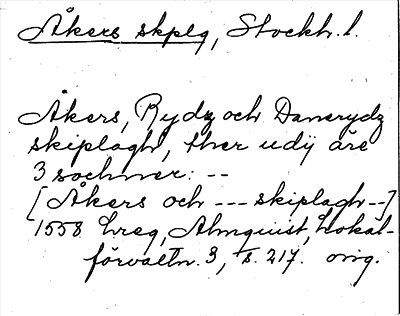 Åkers skplg, Stockh. l.
Åkers, Rydz och Danerydz
skiplagh, ther udij äre
3 sochner: --
[Åkers och --- skiplagh --]
1558 hreg, Almquist, Lokal-
förvaltn. 3, s. 217. orig.